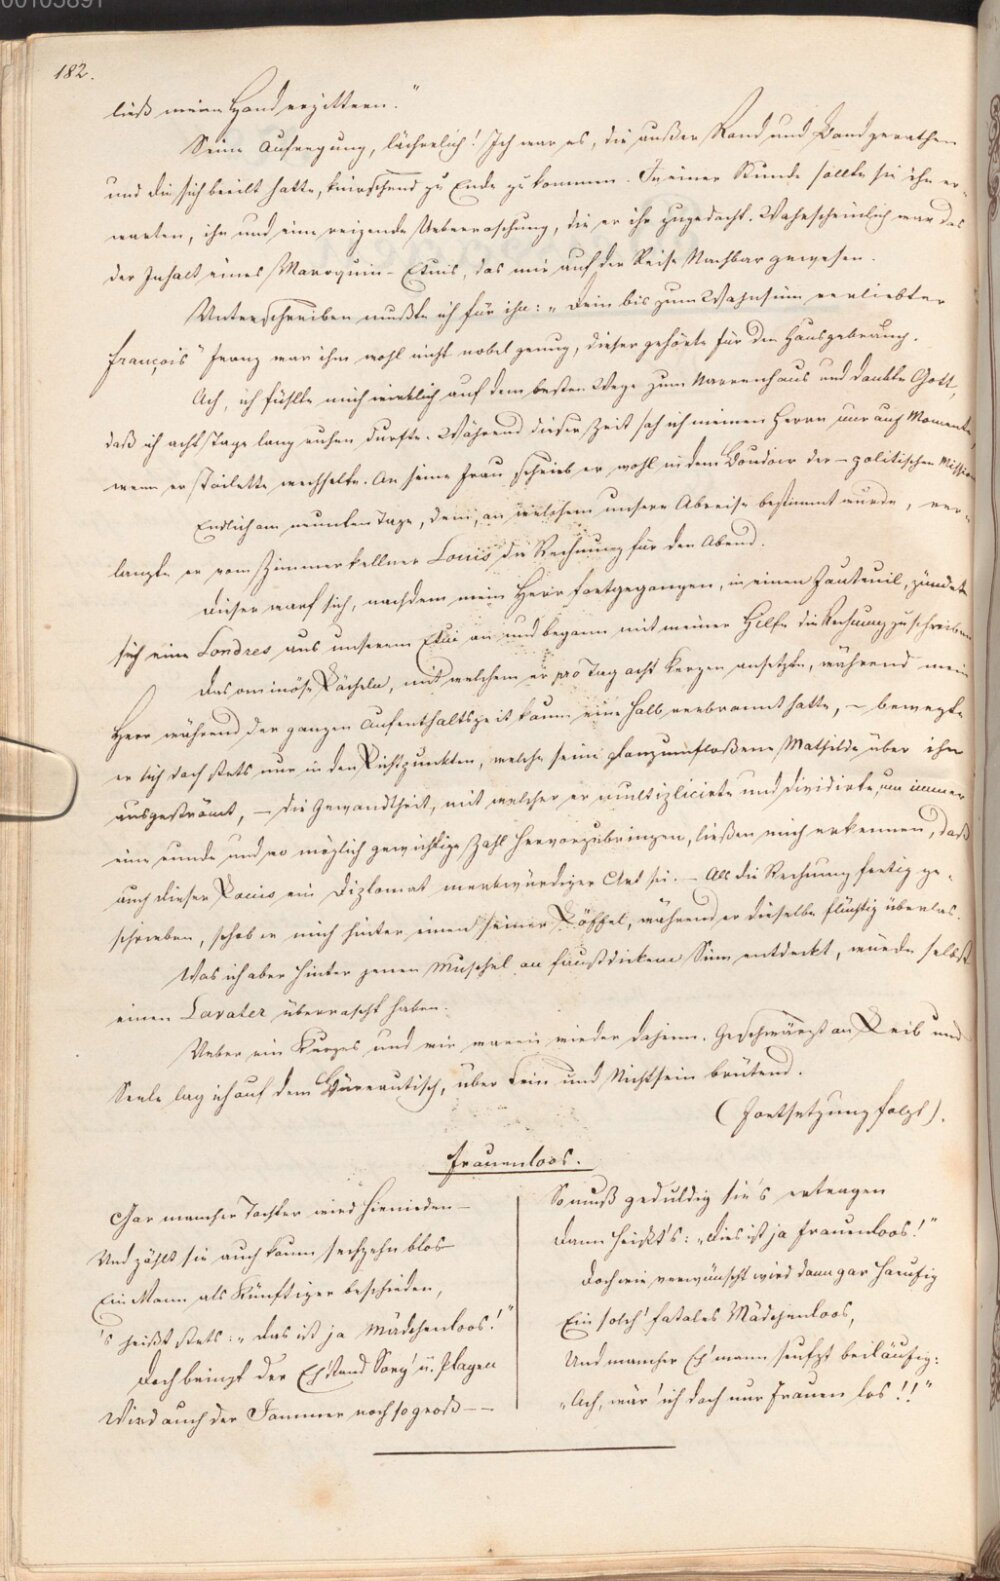 00105891
182.
ließ meine Hand erzittern."
Seine Aufregung, lächerlich! Ich war es, die außer Rand und Band gerathen
und die sich beeilt hatte, knirschend zu Ende zu kommen. In einer Stunde sollte sie ihn er-
warten, ihn und eine reizende Ueberraschung, die er ihr zugedacht. Wahrscheinlich war das
der Inhalt eines Maroquin-Etuis, das mir auf der Reise Nachbar gewesen.
Unterschreiben mußte ich für ihn: „Dein bis zum Wahnsinn verliebter
François" Franz war ihm wohl nicht nobel genug, dieser gehörte für den Hausgebrauch.
Ach, ich fühlte mich wirklich auf dem besten Wege zum Narrenhaus und dankte Gott,
daß ich acht Tage lang ruhen durfte. Während dieser Zeit sah ich meinen Herrn nur auf Momente,
wenn er Toilette wechselte. An seine Frau schrieb er wohl in dem Boudoir der – politischen Mission.
Endlich am neunten Tage, dem, an welchem unsere Abreise bestimmt wurde, ver-
langte er vom Zimmerkellner Louis die Rechnung für den Abend.
Dieser warf sich, nachdem mein Herr fortgegangen, in einen Fauteuil, zündete
sich eine Londres aus unserem Etui an und begann mit meiner Hilfe die Rechnung zu schreiben
Das ominöse Lächeln, mit welchem er pro Tag acht Kerzen ansetzte, während mein
Herr während der ganzen Aufenthaltszeit kaum eine halb verbrannt hatte, – bewegte
er sich doch stets nur in den Lichtpunkten, welche seine glanzumfloßene Mathilde über ihn
ausgeströmt, – die Gewandtheit, mit welcher er multiplicirte und dividirte, um immer
eine runde und wo möglich gewichtige Zahl hervorzubringen, ließen mich erkennen, daß
auch dieser Louis ein Diplomat merkwürdiger Art sei. – Als die Rechnung fertig ge-
schrieben, schob er mich hinter einen seiner Löffel, während er dieselbe flüchtig überlas.
Was ich aber hinter jener Muschel an faustdickem Sinn entdeckt, würde selbst
einen Lavater überrascht haben.
Ueber ein Kurzes und wir waren wieder daheim. Geschwärzt an Leib und
Seele lag ich auf dem Büreautisch, über Sein und Nichtsein brütend.
(Fortsetzung folgt).
Frauenloos.
Gar mancher Tochter wird hienieden –
Und zählt sie auch kaum sechzehn blos
Ein Mann als Künftiger beschieden,
's heißt stets: „das ist ja Mädchenloos!"
Doch bringt der Eh'stand Sorg' u. Plagen
Wird auch der Jammer noch so groß – –
So muß geduldig sie's ertragen
Dann heißt's: „Dies ist ja Frauenloos!"
Doch wie verwünscht wird dann gar häufig
Ein solch' fatales Mädchenloos,
Und mancher Eh'mann seufzt beiläufig:
„Ach, wär' ich doch nur Frauen los!!"